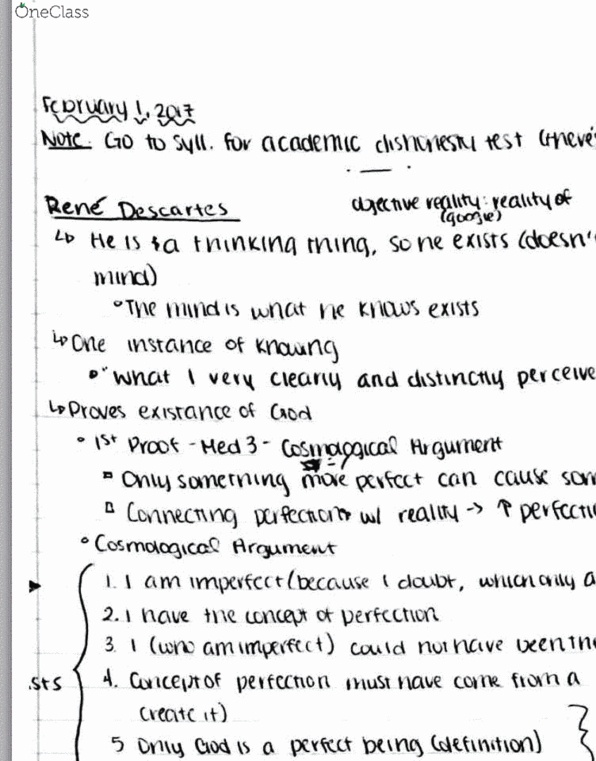 OneClass
February 1, 2017
Note: Go to Syll. for academic dishonesty test (there's
René Descartes
objective reality: reality of
(google)
↳ He is a thinking thing, so he exists (doesn't
mind)
°The mind is what he knows exists
↳ One instance of knowing
° "What I very clearly and distinctly perceive
↳ Proves existance of God
• 1st Proof - Med 3 - Cosmological Argument
▫ Only something more perfect can cause som
▫ Connecting perfection w/ reality -> ↑ perfecti
° Cosmological Argument
1. I am imperfect (because I doubt, which only a
2. I have the concept of perfection
3. I (who am imperfect) could not have been the
.sts
4. Concept of perfection must have come from a
create it)
5 Only God is a perfect being (definition)